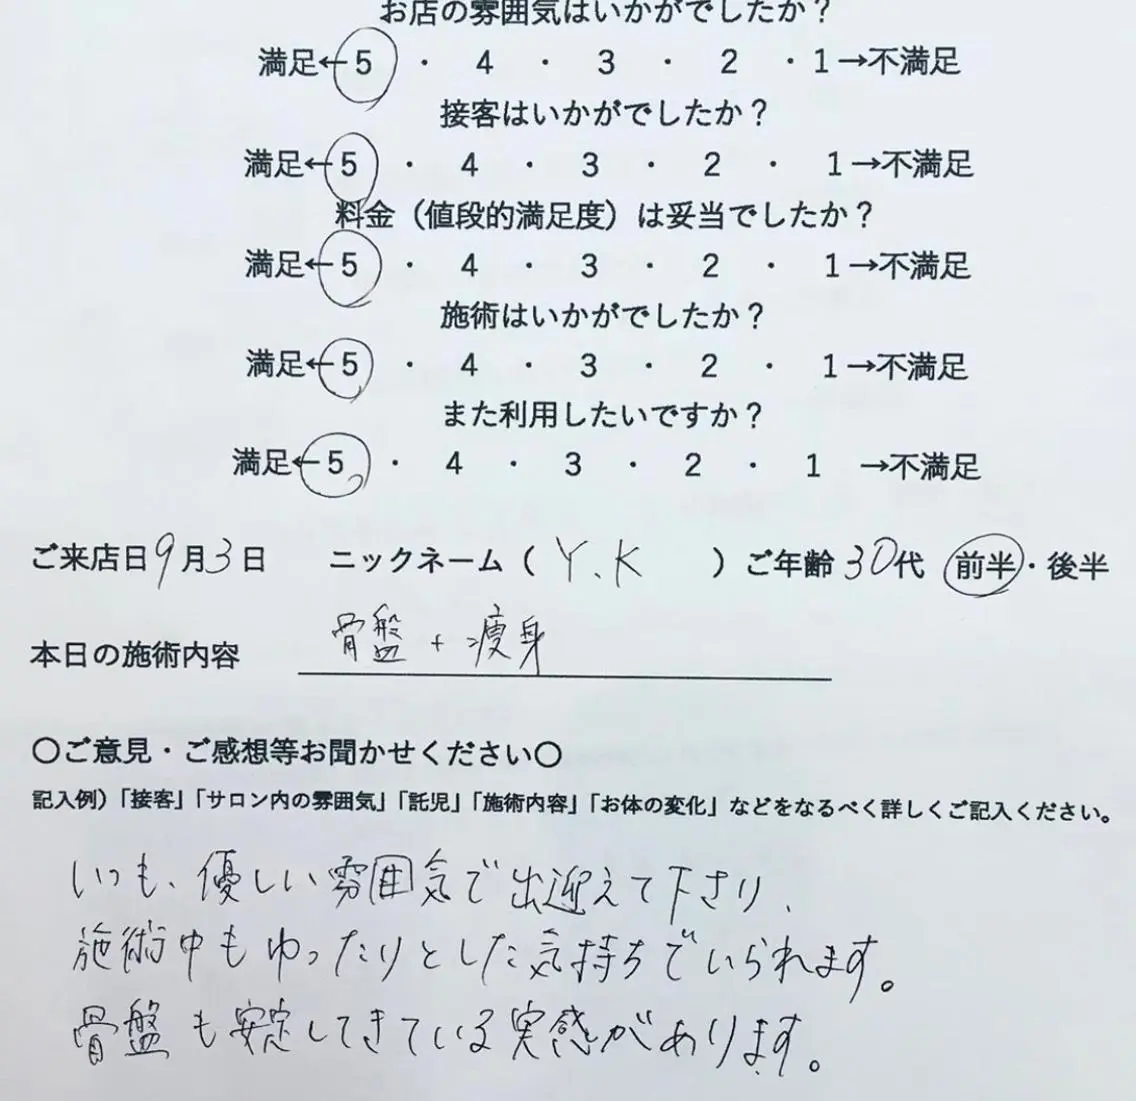 お店の雰囲気はいかがでしたか？
満足←5・4・3・2・1→不満足
接客はいかがでしたか？
満足←5・4・3・2・1→不満足
料金（値段的満足度）は妥当でしたか？
満足←5・4・3・2・1→不満足
施術はいかがでしたか？
満足←5・4・3・2・1→不満足
また利用したいですか？
満足←5・4・3・2・1→不満足
ご来店日9月3日 ニックネーム（Y.K）ご年齢30代 前半・後半
本日の施術内容 骨盤+痩身
〇ご意見・ご感想等お聞かせください〇
記入例）「接客」「サロン内の雰囲気」「託児」「施術内容」「お体の変化」などをなるべく詳しくご記入ください。
いつも、優しい雰囲気で出迎えて下さり、
施術中もゆったりとした気持ちでいられます。
骨盤も安定してきている実感があります。